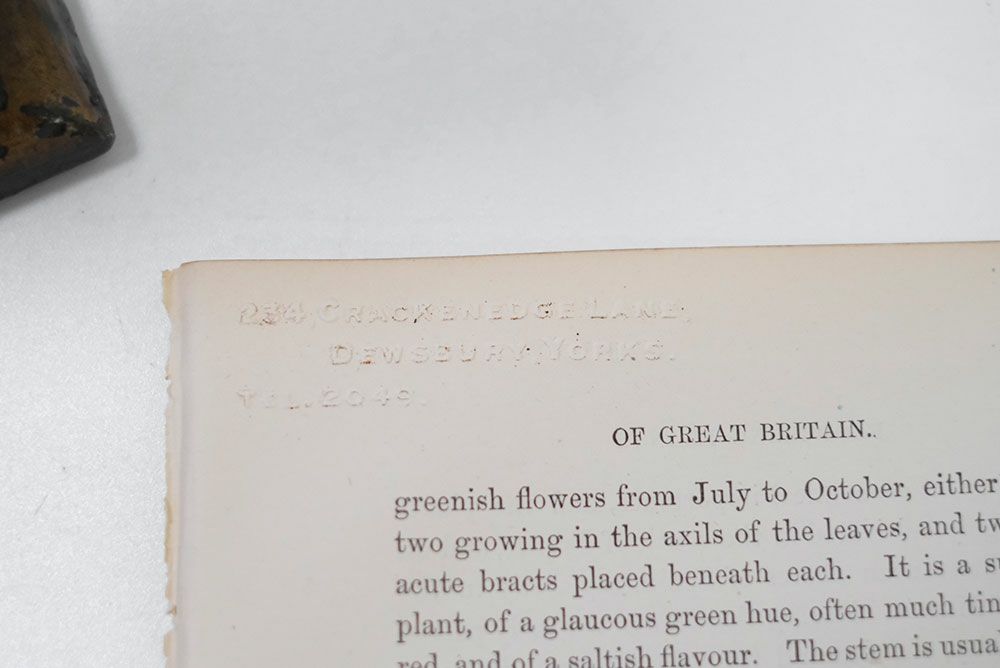 234, CRACKENEDGE LANE,
DEWSBURY, YORKS.
TEL. 2049.
OF GREAT BRITAIN.
greenish flowers from July to October, either
two growing in the axils of the leaves, and tw
acute bracts placed beneath each. It is a su
plant, of a glaucous green hue, often much tin
red, and of a saltish flavour. The stem is usua